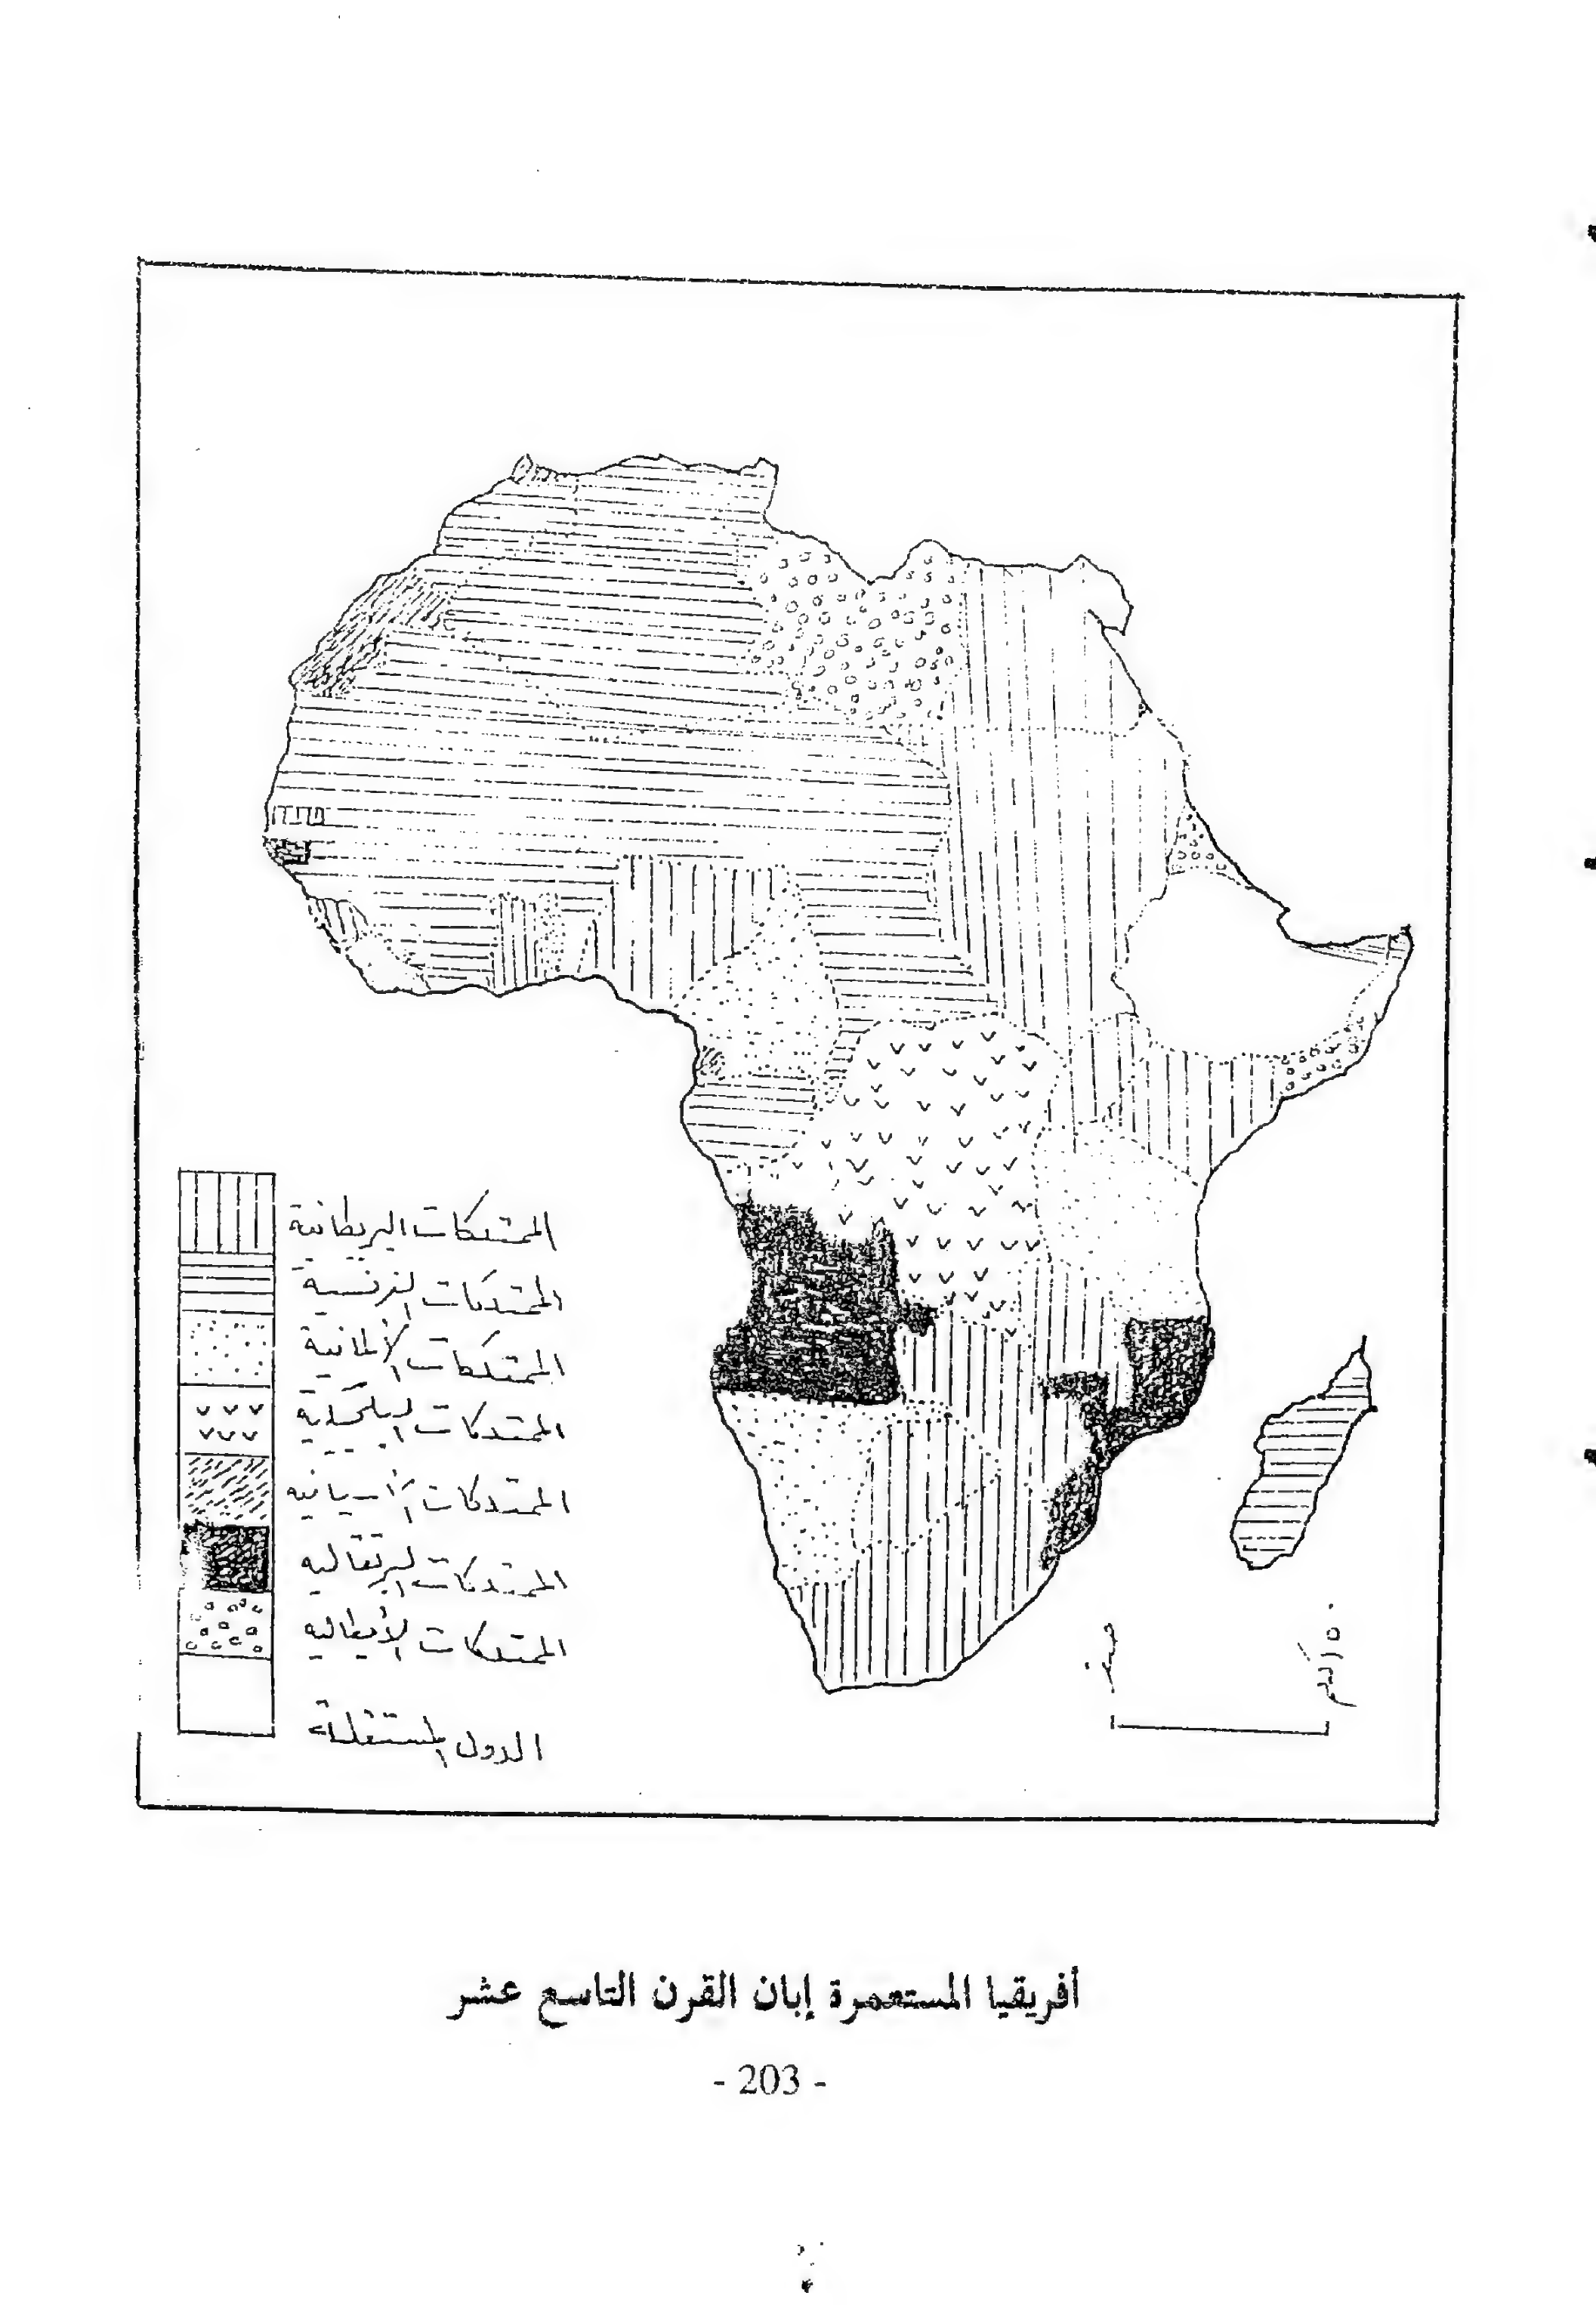 الممتلكات البريطانية
الممتلكات الفرنسية
الممتلكات الألمانية
الممتلكات البلجيكية
الممتلكات الأسبانيه
الممتلكات البرتغاليه
الممتلكات الأيطاليه
الدول المستقلة
صفر
أفريقيا المستعمرة إبان القرن التاسع عشر
- 203 -